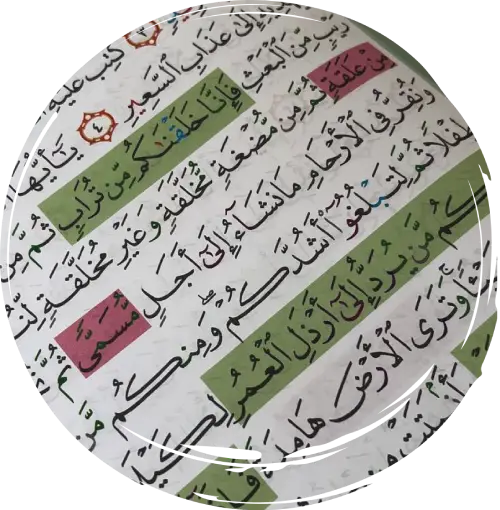 ٣ كُتِبَ عَلَيْهِ
إِلَىٰ عَذَابِ ٱلسَّعِيرِ ٤ يَٰٓأَيُّهَا
مِّنَ ٱلْبَعْثِ فَإِنَّا خَلَقْنَٰكُم مِّن تُرَابٍ ثُمَّ مِن
مِنْ عَلَقَةٍ ثُمَّ مِن مُّضْغَةٍ مُّخَلَّقَةٍ وَغَيْرِ مُخَلَّقَةٍ
وَنُقِرُّ فِى ٱلْأَرْحَامِ مَا نَشَآءُ إِلَىٰٓ أَجَلٍ مُّسَمًّى
ثُمَّ لِتَبْلُغُوٓا۟ أَشُدَّكُمْ ۖ وَمِنكُم
كُم مَّن يُرَدُّ إِلَىٰٓ أَرْذَلِ ٱلْعُمُرِ لِكَيْلَا
وَتَرَى ٱلْأَرْضَ هَامِدَةً